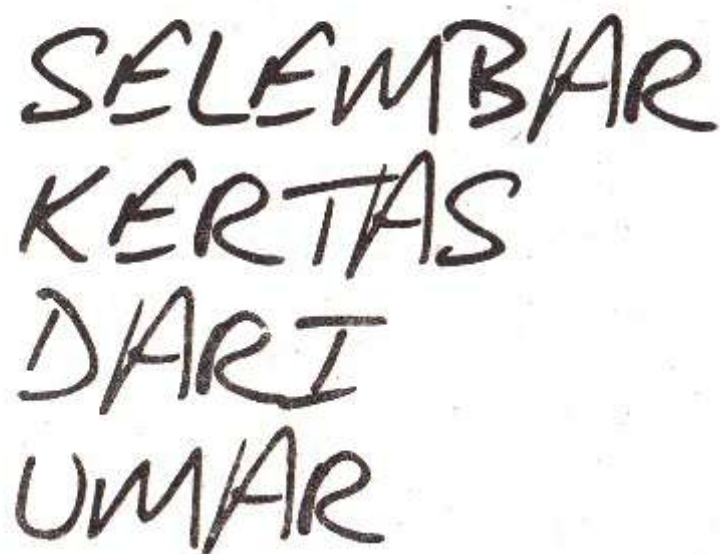 SELEMBAR
KERTAS
DARI
UMAR